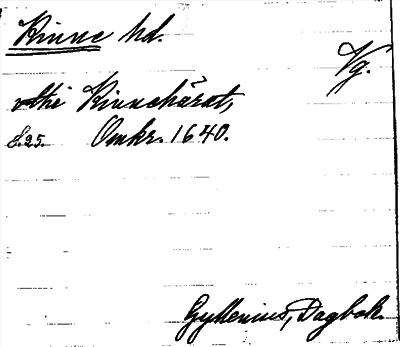 Kinne hd.
Vg.
vthi Kinnehärat,
S. 25. Omkr. 1640.
Gyllenius, Dagbok.